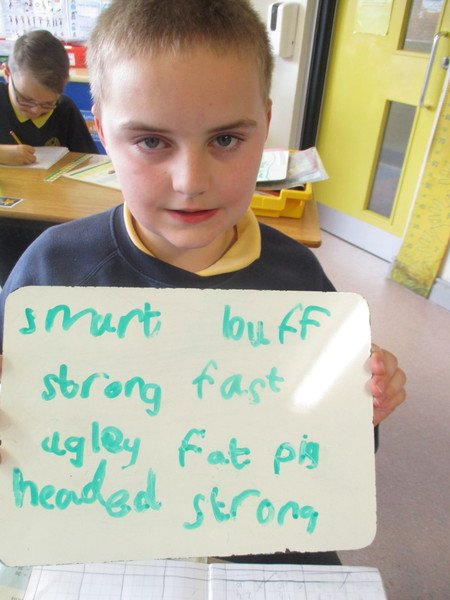 smart buff
strong fast
ugley fat pig
headed strong